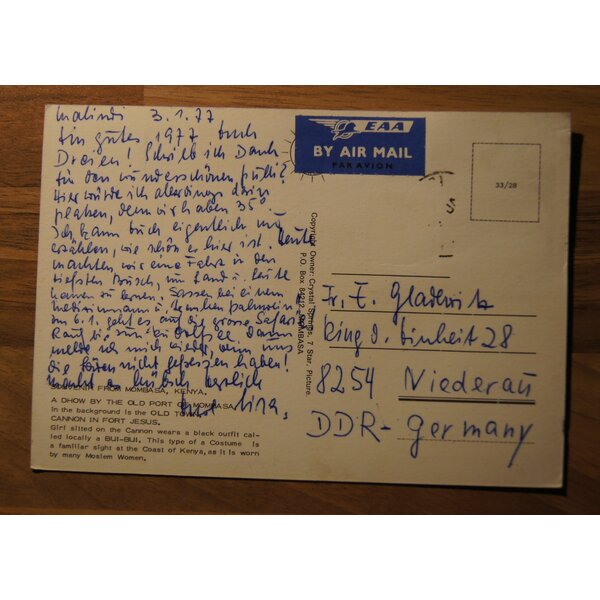 Malindi 3.1.77
Ein gutes 1977 Euch
Dreien! Schrieb ich Dank
für den wunderschönen Pulli?
Hier würde ich allerdings darin
platzen, denn wir haben 35°.
Ich kann Euch eigentlich nur
erzählen, wie schön es hier ist. Heute
machten wir eine Fahrt in den
tiefsten Busch, um Land u. Leute
kennen zu lernen. Sassen bei einem
Medizinmann u.
am 6.1. geht es auf die grosse Safari
melde ich mich wieder, wenn uns
die Löwen nicht gefressen haben!
Macht es hübsch herzlich
Eure
FROM MOMBASA, KENYA.
A DHOW BY THE OLD PORT OF MOMBASA
In the background is the OLD
CANNON IN FORT JESUS.
Girl sited on the Cannon wears a black outfit cal-
led locally a BUI-BUI. This type of a Costume is
a familiar sight at the Coast of Kenya, as it is worn
by many Moslem Women.
Copyright Owner: Crystal Springs, 7 Star, Picture.
P.O. Box 84212, MOMBASA
EAA
BY AIR MAIL
PAR AVION
33/28
Fr. E. Gladewitz
Ring d. Einheit 28
8254 Niederau
DDR-Germany